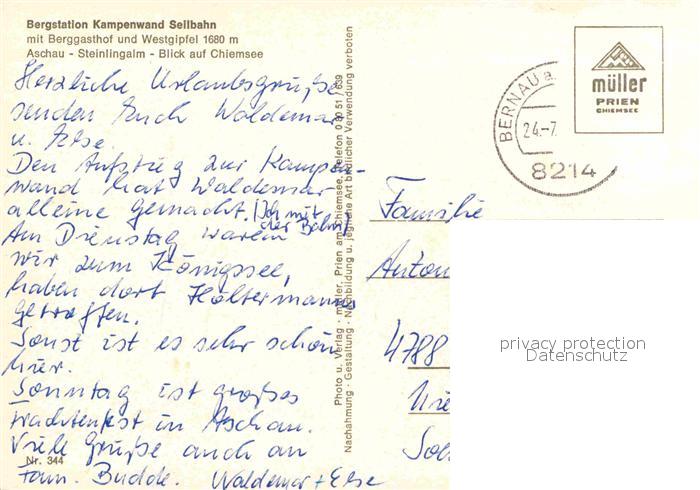 Bergstation Kampenwand Seilbahn
mit Berggasthof und Westgipfel 1680 m
Aschau - Steinlingalm - Blick auf Chiemsee
Herzliche Urlaubsgrüße
senden Euch Waldemar
u. Else.
Den Aufstieg zur Kampen-
wand hat Waldemar
alleine gemacht. (Ich mit
der Bahn)
Am Dienstag waren
wir zum Königssee,
haben dort Holtermanns
getroffen.
Sonst ist es sehr schön
hier.
Sonntag ist großes
Trachtenfest in Aschau.
Viele Grüße auch an
Fam. Budde. Waldemar + Else
Nr. 344
Photo u. Verlag · müller, Prien am Chiemsee, Telefon 0 80 51 / 639
Nachahmung · Gestaltung · Nachbildung u. jegliche Art bildlicher Verwendung verboten
müller
PRIEN
CHIEMSEE
BERNAU a.
24.-7.
8214
Familie
Anton
4788
privacy protection
Datenschutz